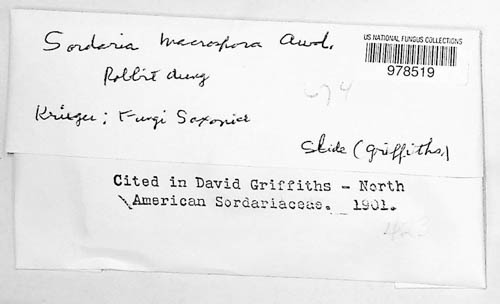 Sordaria macrospora Awd.
US NATIONAL FUNGUS COLLECTIONS
978519
Rabbit dung
674
Krieger; Fungi Saxonici
Slide (Griffiths)
Cited in David Griffiths - North
American Sordariaceae. 1901.